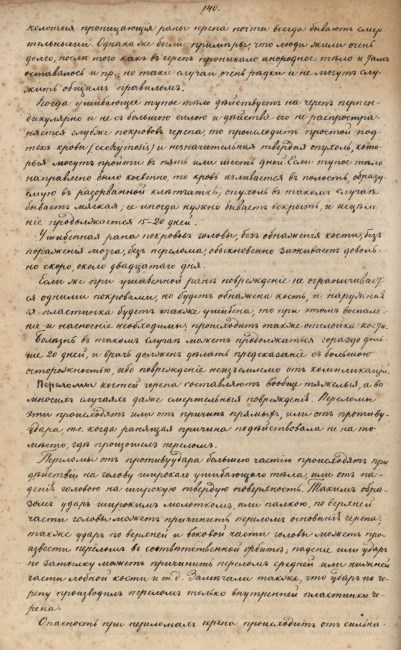 140.
колотыя проницающія раны черепа почти всегда бываютъ смер
тельными. Однако же были примѣры, что люди жили очень
долго, послѣ того какъ въ черепъ проникало инородное тѣло и тамъ
оставалось и пр. но такіе случаи очень рѣдки и не могутъ слу
жить общимъ правиломъ.
Когда ушибающее тупое тѣло дѣйствуетъ на черепъ перпен-
дикулярно и не съ большою силою и дѣйствіе его не распростра-
няется глубже покрововъ черепа, то происходитъ простой под-
текъ крови и незначительная твердая опухоль, кото-
рыя могутъ пройти въ пять или шесть дней. Если тупое тѣло
направлено было косвенно, то кровь изливается въ полость, образу
емую въ разорванной клѣтчаткѣ; опухоль въ такомъ случаѣ
бываетъ мягкая; ее иногда нужно бываетъ вскрыть, и исцѣле
ніе продолжается 15-20 дней.
Ушибенная рана покрововъ головы, безъ обнаженія кости, безъ
пораженія мозга, безъ перелома, обыкновенно заживаетъ доволь-
но скоро, около двадцатаго дня.
Если же при ушибенной ранѣ поврежденіе не ограничивает
ся одними покровами, но будетъ обнажена кость, и наружная
пластинка будетъ также ушибена, то при этомъ воспале-
ніе и нагноеніе необходимы; происходитъ также отслойка кости.
Болѣзнь въ такомъ случаѣ можетъ продолжаться гораздо доль
ше 20 дней, и врачъ долженъ дѣлать предсказаніе съ большою
осторожностью, ибо поврежденіе
Переломы костей черепа составляютъ вообще тяжелыя, а во
многихъ случаяхъ даже смертельныя поврежденія. Переломы
эти происходятъ или отъ причинъ прямыхъ, или отъ противу-
удара т.е. когда ранящая причина подѣйствовала не на то
мѣсто, гдѣ произошелъ переломъ.
Переломы отъ противуудара большею частію происходятъ при
дѣйствіи на голову широкаго ушибающаго тѣла, или отъ па-
денія головою на широкую твердую поверхность. Такимъ обра-
зомъ ударъ широкимъ молоткомъ, или палкою, по верхней
части головы можетъ причинить переломъ основанія черепа;
также ударъ по верхней и боковой части головы можетъ про-
извести переломъ въ соотвѣтственной орбитѣ; паденіе или ударъ
по затылку можетъ причинить переломъ средней или нижней
части лобной кости и т.д. Замѣчали также, что ударъ по че-
репу производилъ переломъ только внутренней пластинки че-
репа.
Опасность при переломахъ черепа происходитъ отъ сильна-